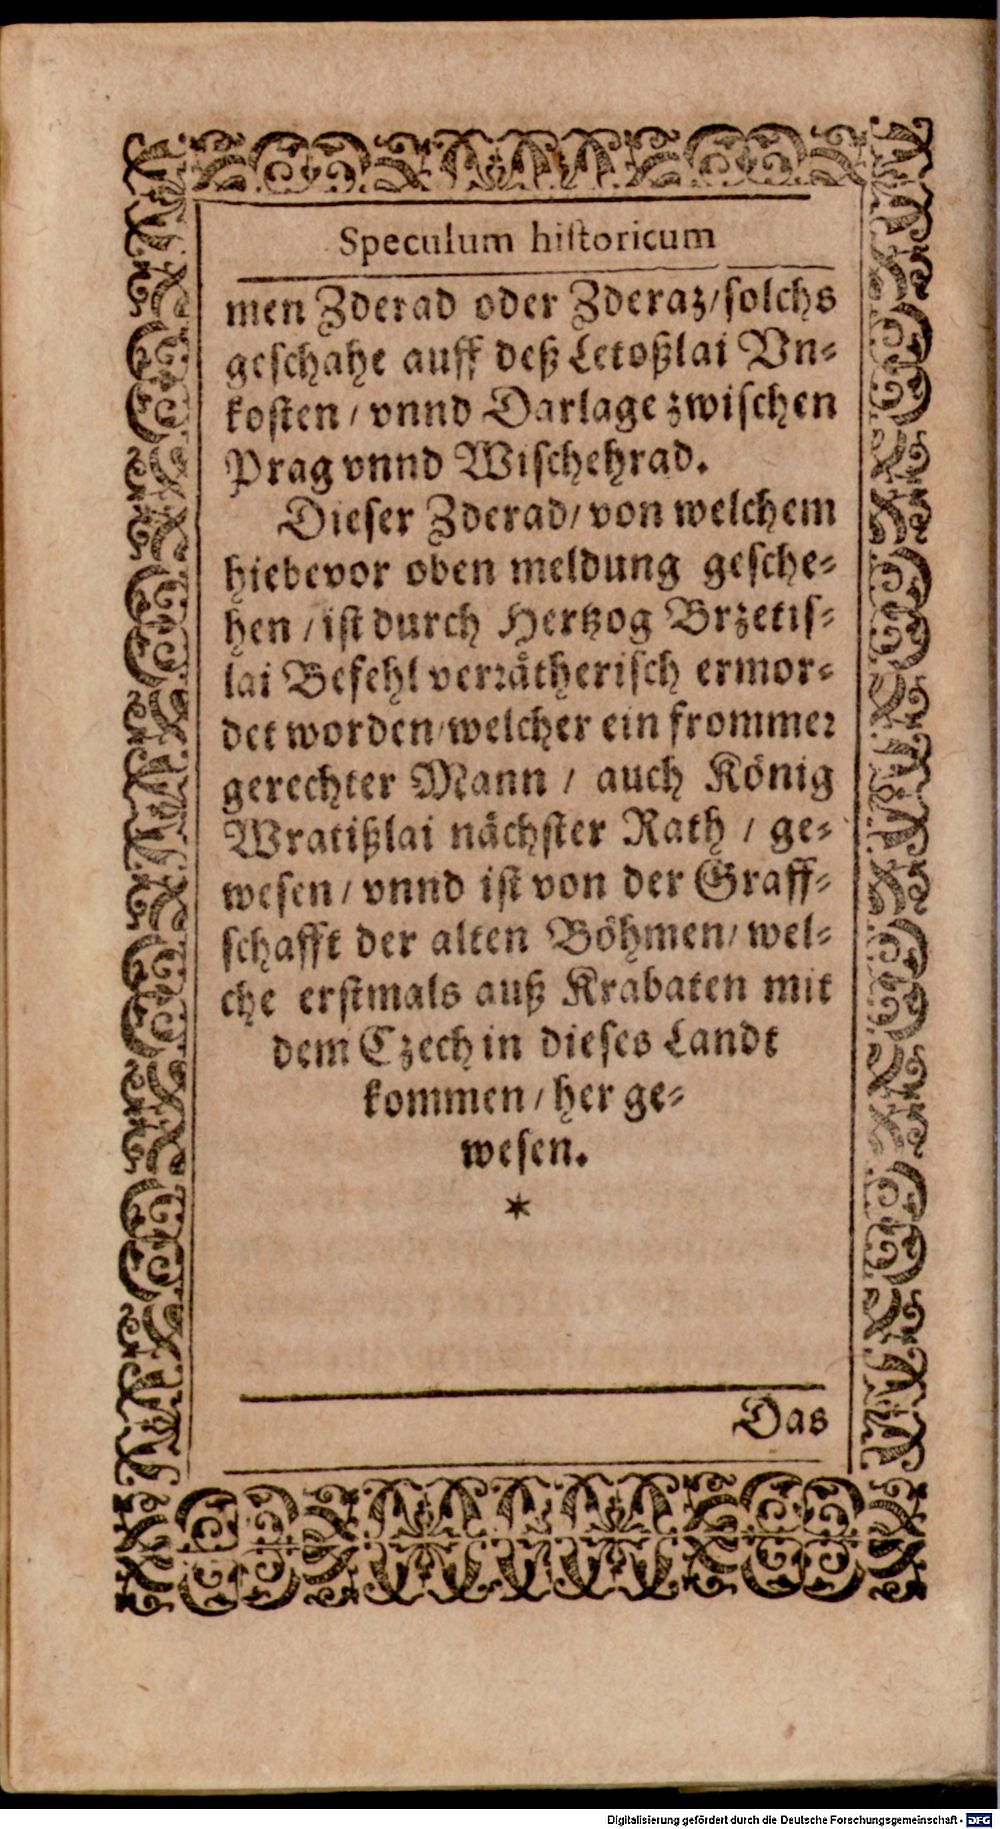 Speculum hiſtoricum
men Zderad oder Zderaz/ſolchs
geſchahe auff deß Letoßlai Vn⸗
koſten / vnnd Darlage zwiſchen
Prag vnnd Wiſchehrad.
Dieſer Zderad/ von welchem
hiebevor oben meldung geſche⸗
hen / iſt durch Hertzog Brzetiſ⸗
lai Befehl verꝛaͤtheriſch ermor⸗
det worden/welcher ein frommeꝛ
gerechter Mann / auch Koͤnig
Wratißlai naͤchſter Rath / ge⸗
weſen / vnnd iſt von der Graff⸗
ſchafft der alten Boͤhmen/ wel⸗
che erſtmals auß Krabaten mit
dem Czech in dieſes Landt
kommen / her ge⸗
weſen.
*
Das
Digitalisierung gefördert durch die Deutsche Forschungsgemeinschaft - DFG